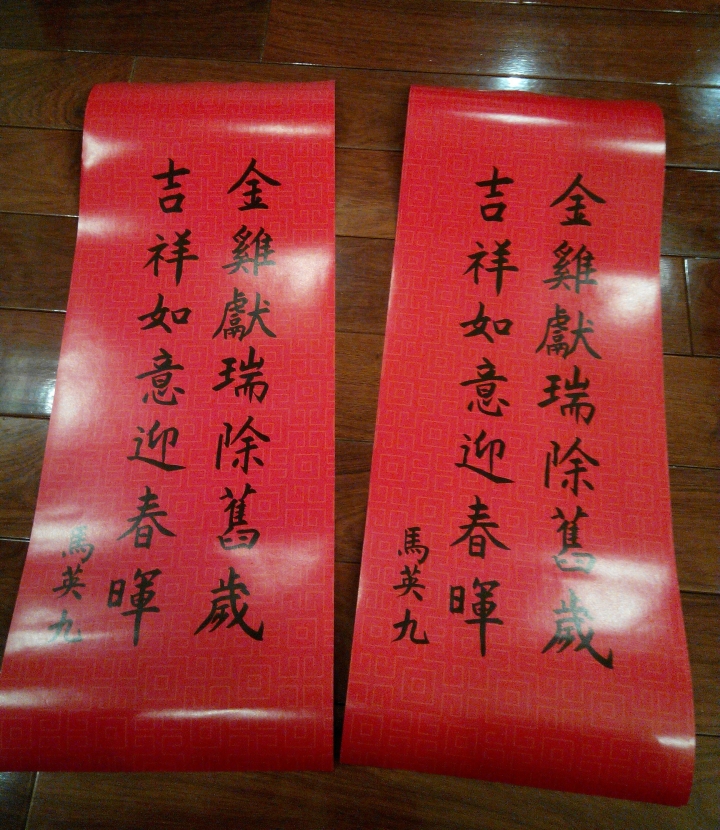 金雞獻瑞除舊歲
吉祥如意迎春暉
馬英九
金雞獻瑞除舊歲
吉祥如意迎春暉
馬英九